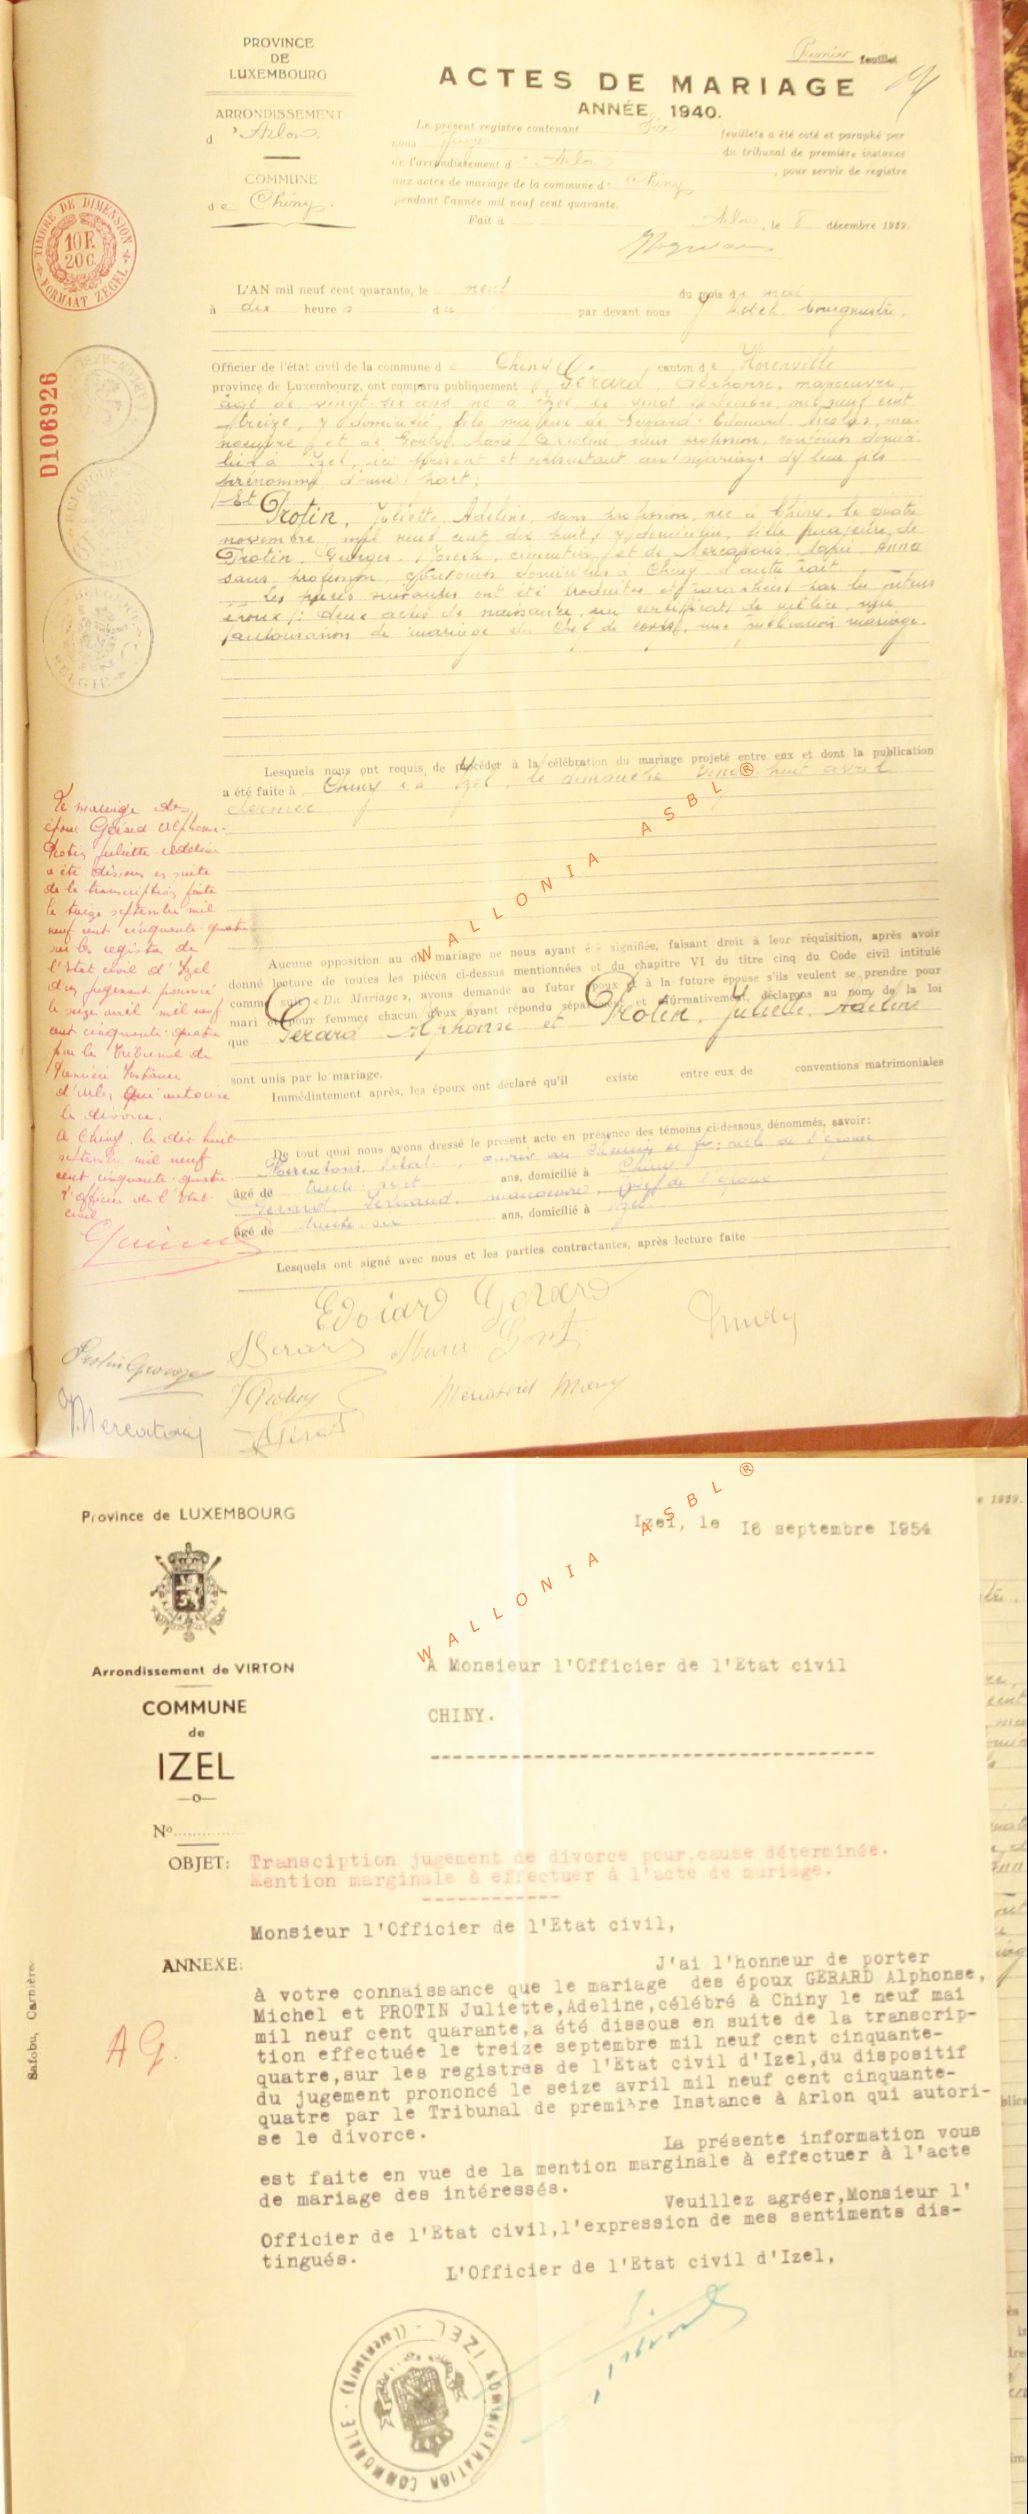 PROVINCE
DE
LUXEMBOURG
ARRONDISSEMENT
d'Arlon.
COMMUNE
de Chiny.
Premier feuillet
ACTES DE MARIAGE
ANNÉE 1940.
Le présent registre contenant six feuillets a été coté et paraphé par
nous juge du tribunal de première instance
de l'arrondissement d'Arlon, pour servir de registre
aux actes de mariage de la commune de Chiny
pendant l'année mil neuf cent quarante.
Fait à Arlon, le 8 décembre 1939.
TIMBRE DE DIMENSION
10 F.
20 C.
FORMAAT ZEGEL
D106926
L'AN mil neuf cent quarante, le neuf du mois de mai
à dix heures du par devant nous bourgmestre.
Officier de l'état civil de la commune de Chiny, canton de Florenville
province de Luxembourg, ont comparu publiquement Gérard, Alphonse, manœuvre,
âgé de vingt-six ans, né à Izel le vingt septembre mil neuf cent
treize, y domicilié, fils majeur de Gérard Edouard Nicolas, ma-
nœuvre, et de Marie Caroline, sans profession, conjoints domici-
liés à Izel, ici présent et consentant au mariage de leur fils
prénommé d'une part;
Et Protin, Juliette, Adeline, sans profession, née à Chiny, le quatre
novembre, mil neuf cent dix huit, y domiciliée, fille majeure de
Protin, Georges, Joseph, et de Mercatoris, Marie Anna
sans profession, conjoints domiciliés à Chiny d'autre part.
Les pièces suivantes ont été produites par les futurs
époux: deux actes de naissance, un certificat de milice, une
autorisation de mariage du Chef de corps, une publication mariage.
Lesquels nous ont requis de procéder à la célébration du mariage projeté entre eux et dont la publication
a été faite à Chiny et à Izel, le dimanche vingt huit avril
dernier
Le mariage des
époux Gérard Alphonse-
Protin Juliette-Adeline
a été dissous en suite
de la transcription faite
le treize septembre mil
neuf cent cinquante-quatre
sur les registres de
l'état civil d'Izel
d'un jugement prononcé
le seize avril mil neuf
cent cinquante-quatre
par le Tribunal de
Première Instance
d'Arlon qui autorise
le divorce.
A Chiny, le dix huit
septembre mil neuf
cent cinquante-quatre
L'officier de l'Etat
civil
Aucune opposition au dit mariage ne nous ayant été signifiée, faisant droit à leur réquisition, après avoir
donné lecture de toutes les pièces ci-dessus mentionnées et du chapitre VI du titre cinq du Code civil intitulé
comme suit: «Du Mariage», avons demandé au futur époux et à la future épouse s'ils veulent se prendre pour
mari et pour femme; chacun d'eux ayant répondu séparément et affirmativement, déclarons au nom de la loi
que Gérard Alphonse et Protin, Juliette, Adeline
sont unis par le mariage.
Immédiatement après, les époux ont déclaré qu'il existe entre eux de conventions matrimoniales
De tout quoi nous avons dressé le présent acte en présence des témoins ci-dessous dénommés, savoir:
Mercatoris, ouvrier au Chemin de fer, oncle de l'épouse
âgé de trente-huit ans, domicilié à Chiny
Gérard, Fernand, manœuvre, de l'époux
âgé de trente-six ans, domicilié à Izel.
Lesquels ont signé avec nous et les parties contractantes, après lecture faite
Edouard Gérard
Protin George
J Protin
Mercatoris
WALLONIA ASBL ®
Province de LUXEMBOURG
Izel, le 16 septembre 1954
Arrondissement de VIRTON
COMMUNE
de
IZEL
—o—
A Monsieur l'Officier de l'Etat civil
CHINY.
Nº
OBJET: Transciption jugement de divorce pour cause déterminée.
Mention marginale à effectuer à l'acte de mariage.
Monsieur l'Officier de l'Etat civil,
ANNEXE:
J'ai l'honneur de porter
à votre connaissance que le mariage des époux GERARD Alphonse,
Michel et PROTIN Juliette,Adeline,célébré à Chiny le neuf mai
mil neuf cent quarante,a été dissous en suite de la transcrip-
tion effectuée le treize septembre mil neuf cent cinquante-
quatre,sur les registres de l'Etat civil d'Izel,du dispositif
du jugement prononcé le seize avril mil neuf cent cinquante-
quatre par le Tribunal de première Instance à Arlon qui autori-
se le divorce.
La présente information vous
est faite en vue de la mention marginale à effectuer à l'acte
de mariage des intéressés.
Veuillez agréer,Monsieur l'
Officier de l'Etat civil,l'expression de mes sentiments dis-
tingués.
L'Officier de l'Etat civil d'Izel,
AG.
ADMINISTRATION COMMUNALE · IZEL (Luxembourg)
WALLONIA ASBL ®